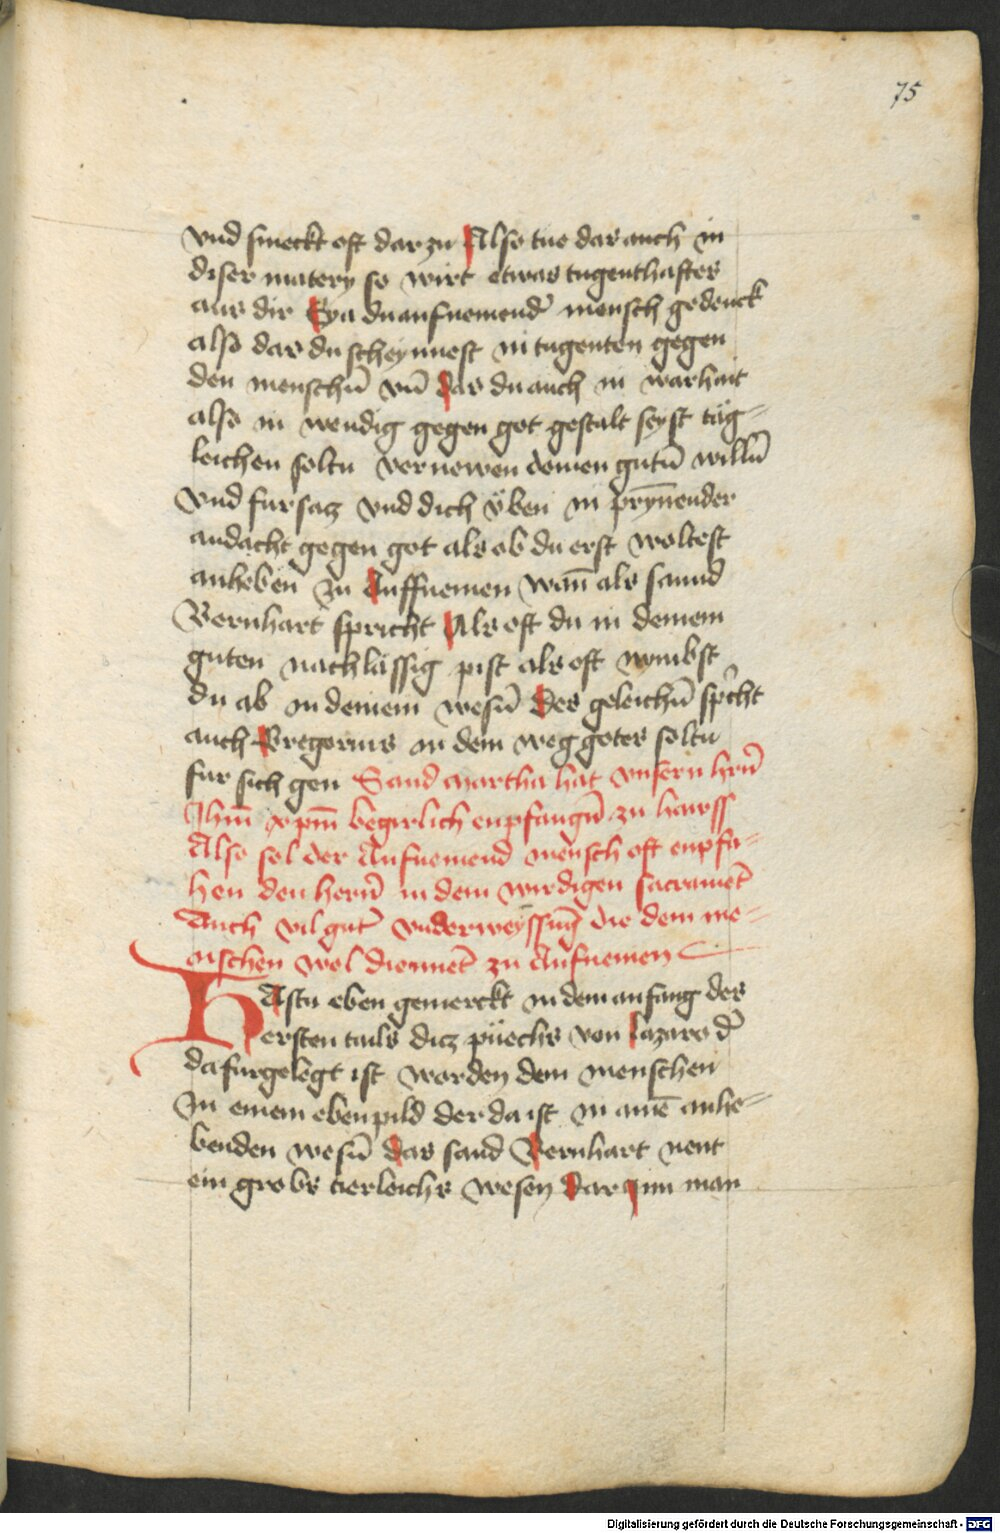 75
vnd smeckt oft dar zu Also tue das auch in
diser matery so wirt etwas tugenthaftes
aus dir Eya du aufnemend̄ mensch gedenck
also das du scheynnest in tugenten gegen
den menschn̄ vn̄ das du auch in warhait
also in wendig gegen got gestalt seyst täg=
leichen soltu vernewen deinen gutn̄ willn̄
vnd fursacz vnd dich vben in prȳnender
andacht gegen got als ob du erst woltest
anheben zu Auffnemen wan̄ als sannd
Bernhart spricht Als oft du in deinem
guten nachlässig pist als oft nymbst
du ab in deinem wesn̄ des geleichn̄ sp'cht
auch Gregorius in dem weg gotes soltu
fur sich gen Sand Martha hat vnsern hrn̄
Jhm̄ xpm̄ begirlich enpfangn̄ zu hawss
Also sol der Aufnemend mensch oft enpfa=
hen den hern̄ in dem wirdigen sacramēt
Auch vil gut' vnderweyssunḡ die dem me=
nischen wol diennēt zu Aufnemen
HAstu eben gemerckt in dem anfang des
ersten tails dicz püechs von lazaro d'
da furgelegt ist worden dem menschen
In einem ebenpild der da ist in aīnē anhe=
benden wesn̄ das sand Bernhart nent
ein grobs tierleichs wesen Dar jnn man
Digitalisierung gefördert durch die Deutsche Forschungsgemeinschaft - DFG